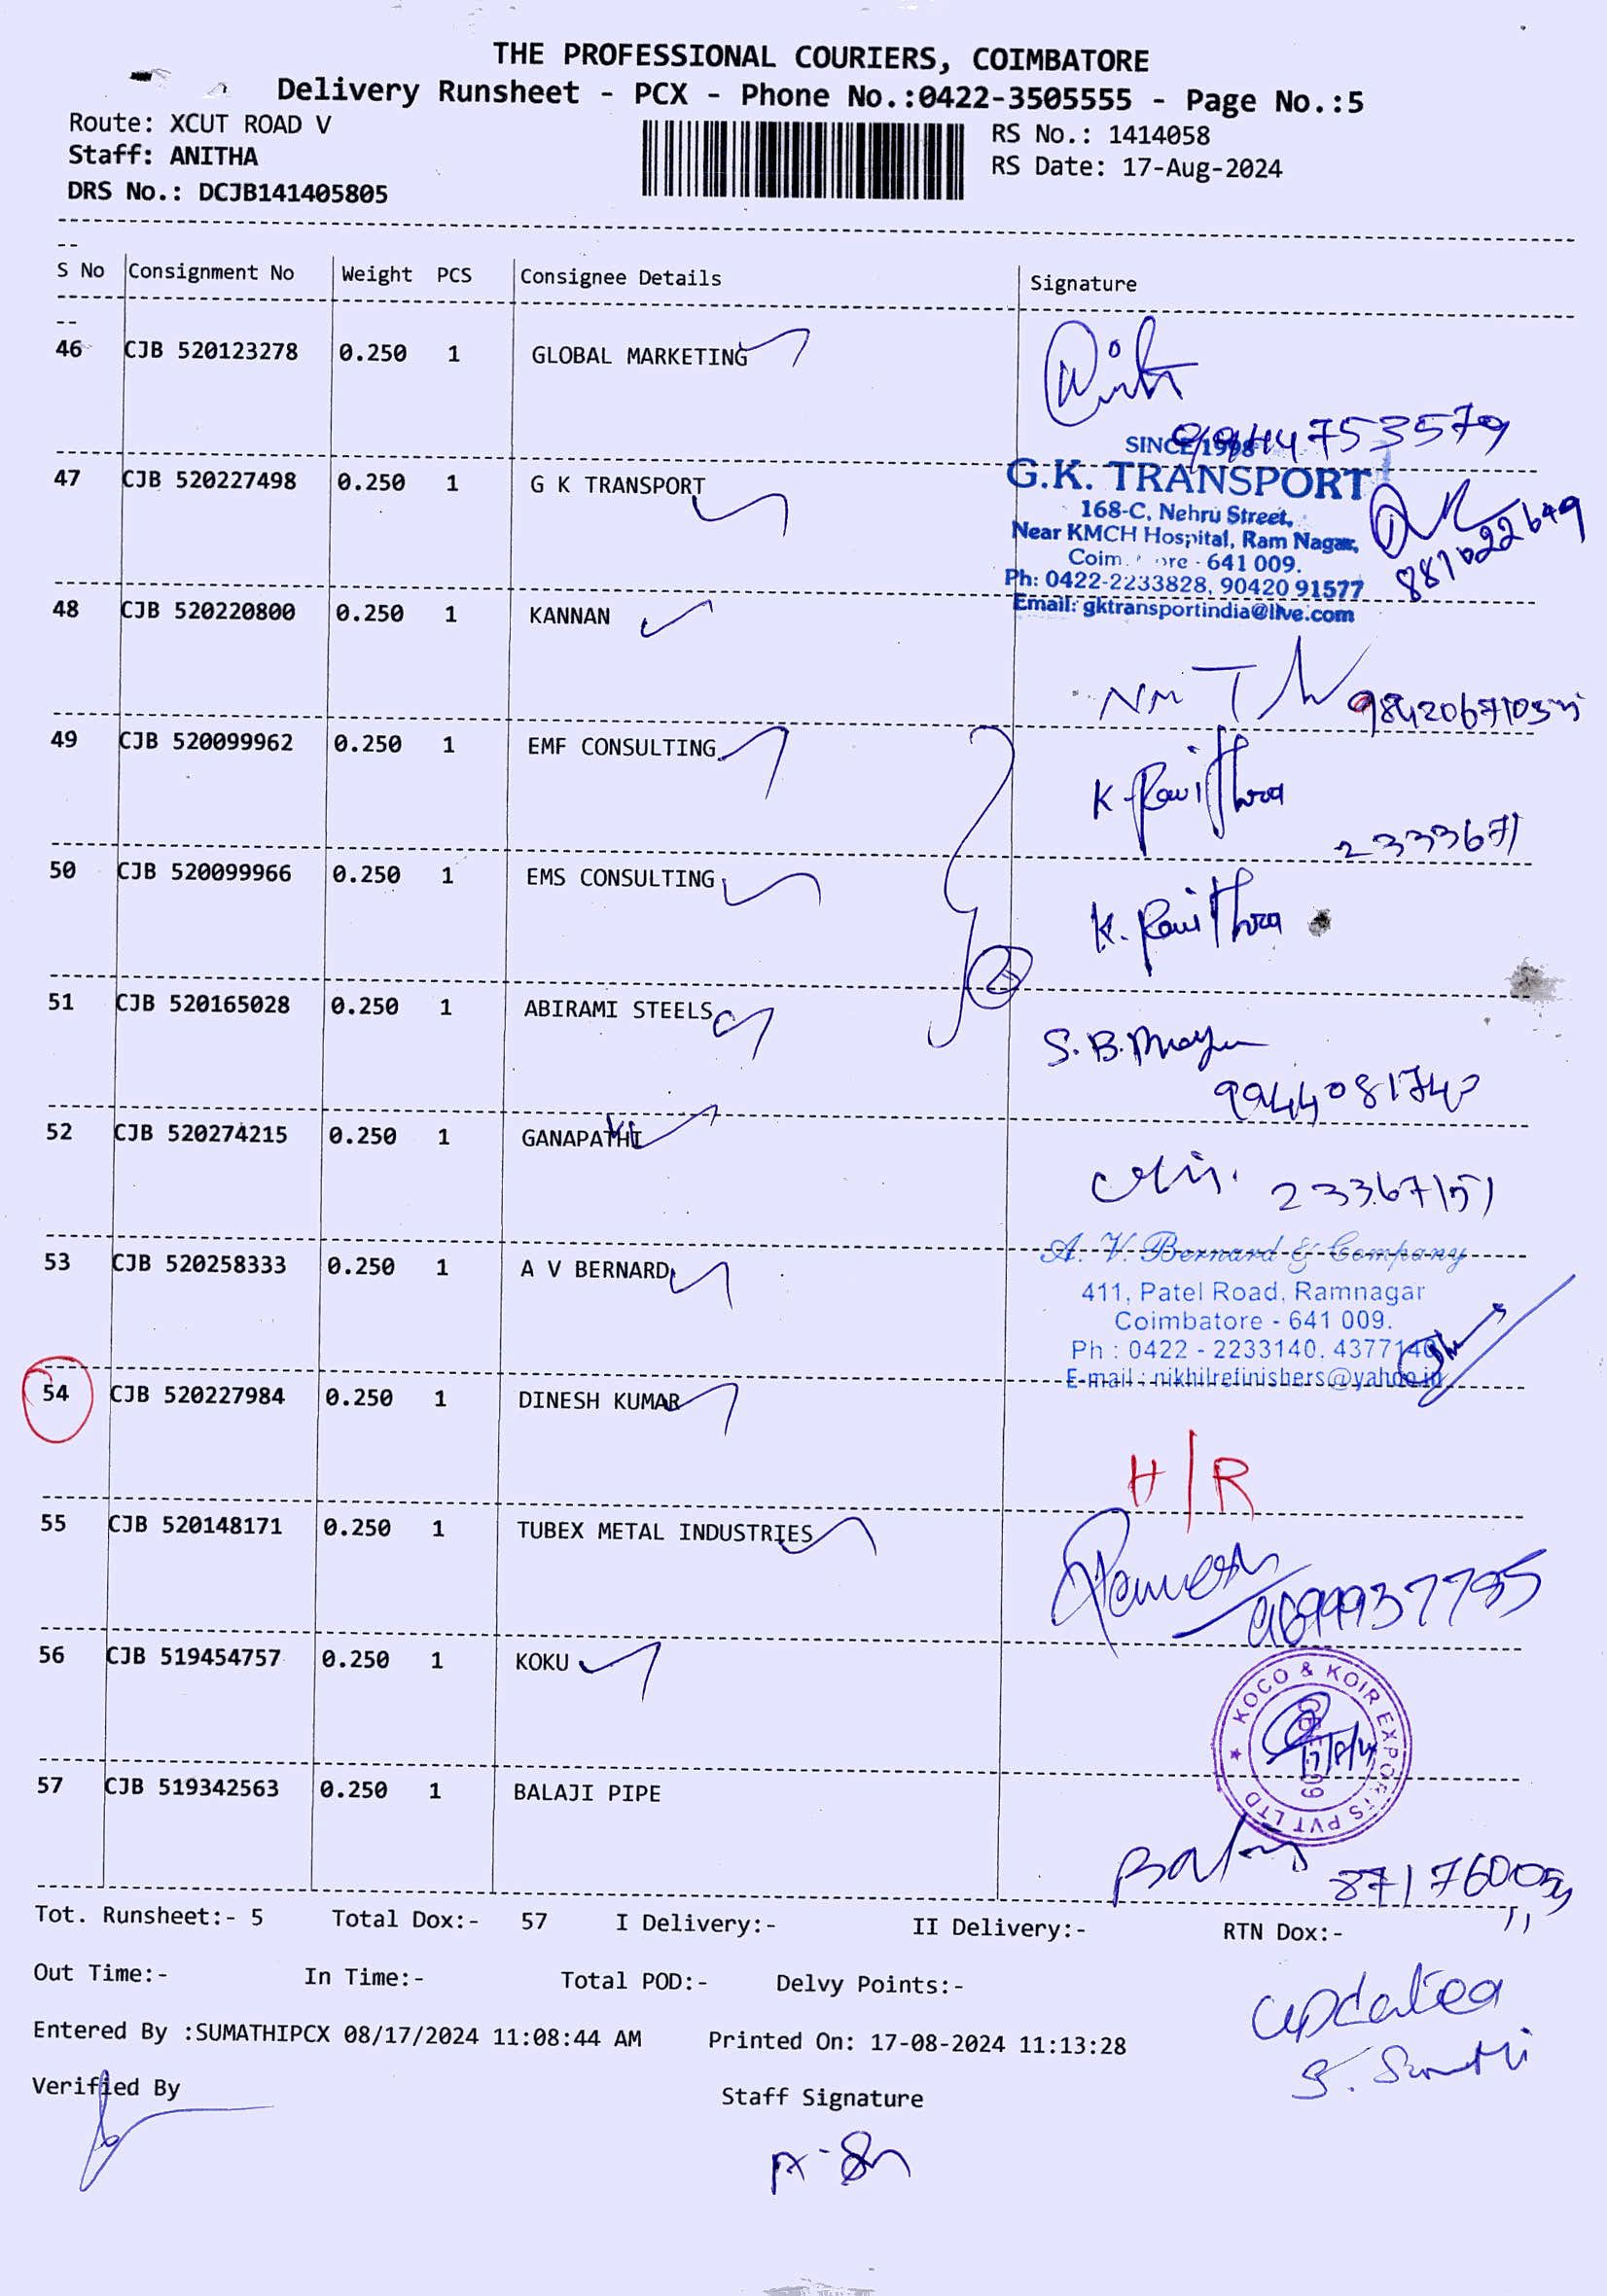 THE PROFESSIONAL COURIERS, COIMBATORE
Delivery Runsheet - PCX - Phone No.:0422-3505555 - Page No.:5
Route: XCUT ROAD V
RS No.: 1414058
Staff: ANITHA
RS Date: 17-Aug-2024
DRS No.: DCJB141405805
S No Consignment No Weight PCS Consignee Details Signature
46 CJB 520123278 0.250 1 GLOBAL MARKETING
SINCE 1998
47 CJB 520227498 0.250 1 G K TRANSPORT
G.K. TRANSPORT
168-C, Nehru Street,
Near KMCH Hospital, Ram Nagar,
Coim ore - 641 009.
Ph: 0422-2233828, 90420 91577
Email: gktransportindia@live.com
48 CJB 520220800 0.250 1 KANNAN
49 CJB 520099962 0.250 1 EMF CONSULTING
2333671
50 CJB 520099966 0.250 1 EMS CONSULTING
2
51 CJB 520165028 0.250 1 ABIRAMI STEELS
S.B.
52 CJB 520274215 0.250 1 GANAPATHI
53 CJB 520258333 0.250 1 A V BERNARD
A. V. Bernard & Company
411, Patel Road, Ramnagar
Coimbatore - 641 009.
Ph : 0422 - 2233140, 4377140
E-mail : nikhilrefinishers@yahoo.in
54 CJB 520227984 0.250 1 DINESH KUMAR
H/R
55 CJB 520148171 0.250 1 TUBEX METAL INDUSTRIES
56 CJB 519454757 0.250 1 KOKU
KOCO & KOIR EXPORTS PVT LTD
57 CJB 519342563 0.250 1 BALAJI PIPE
Tot. Runsheet:- 5 Total Dox:- 57 I Delivery:- II Delivery:- RTN Dox:-
Out Time:- In Time:- Total POD:- Delvy Points:-
updated
Entered By :SUMATHIPCX 08/17/2024 11:08:44 AM Printed On: 17-08-2024 11:13:28
Verified By Staff Signature